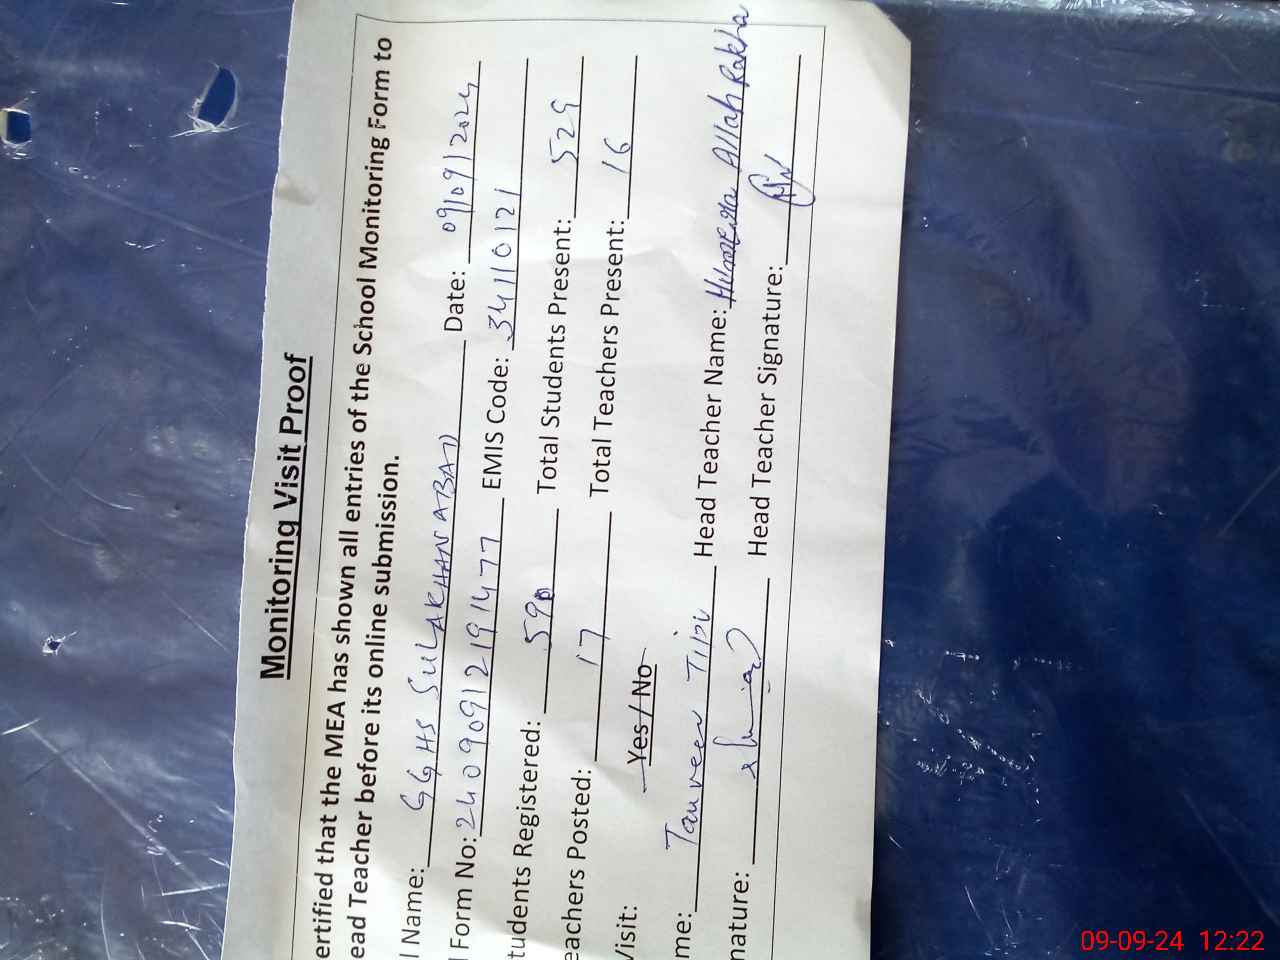 Monitoring Visit Proof
ertified that the MEA has shown all entries of the School Monitoring Form to
ead Teacher before its online submission.
l Name: GGHS SULAKHANABAD Date: 09/09/2024
l Form No: 24090912191477 EMIS Code: 34110121
tudents Registered: 590 Total Students Present: 529
eachers Posted: 17 Total Teachers Present: 16
Visit: Yes / No
me: Tanveer Tipu Head Teacher Name: Allah Rakha
nature: Head Teacher Signature:
09-09-24 12:22